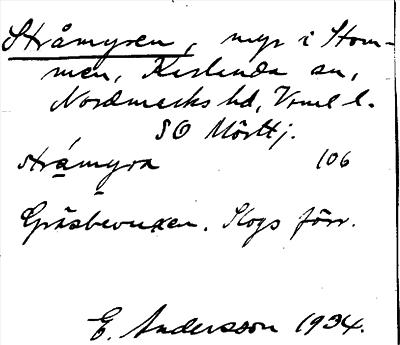 Stråmyren, myr i Stom-
men, Karlanda sn,
Nordmarks hd, Vrml l.
SO Mörttj.
strámyra 106
Gräsbevuxen. Skogs förr.
E. Andersson 1934.